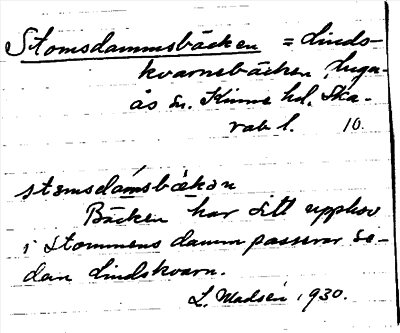 Stomsdammsbäcken = Linds-
kvarnsbäcken, Luga-
ås sn. Kinne hd. Ska-
rab l. 10.
stomsdámsbäkan
Bäcken har sitt upphov
i Stommens damm passerar se-
dan Lindskvarn.
L. Madsén 1930.